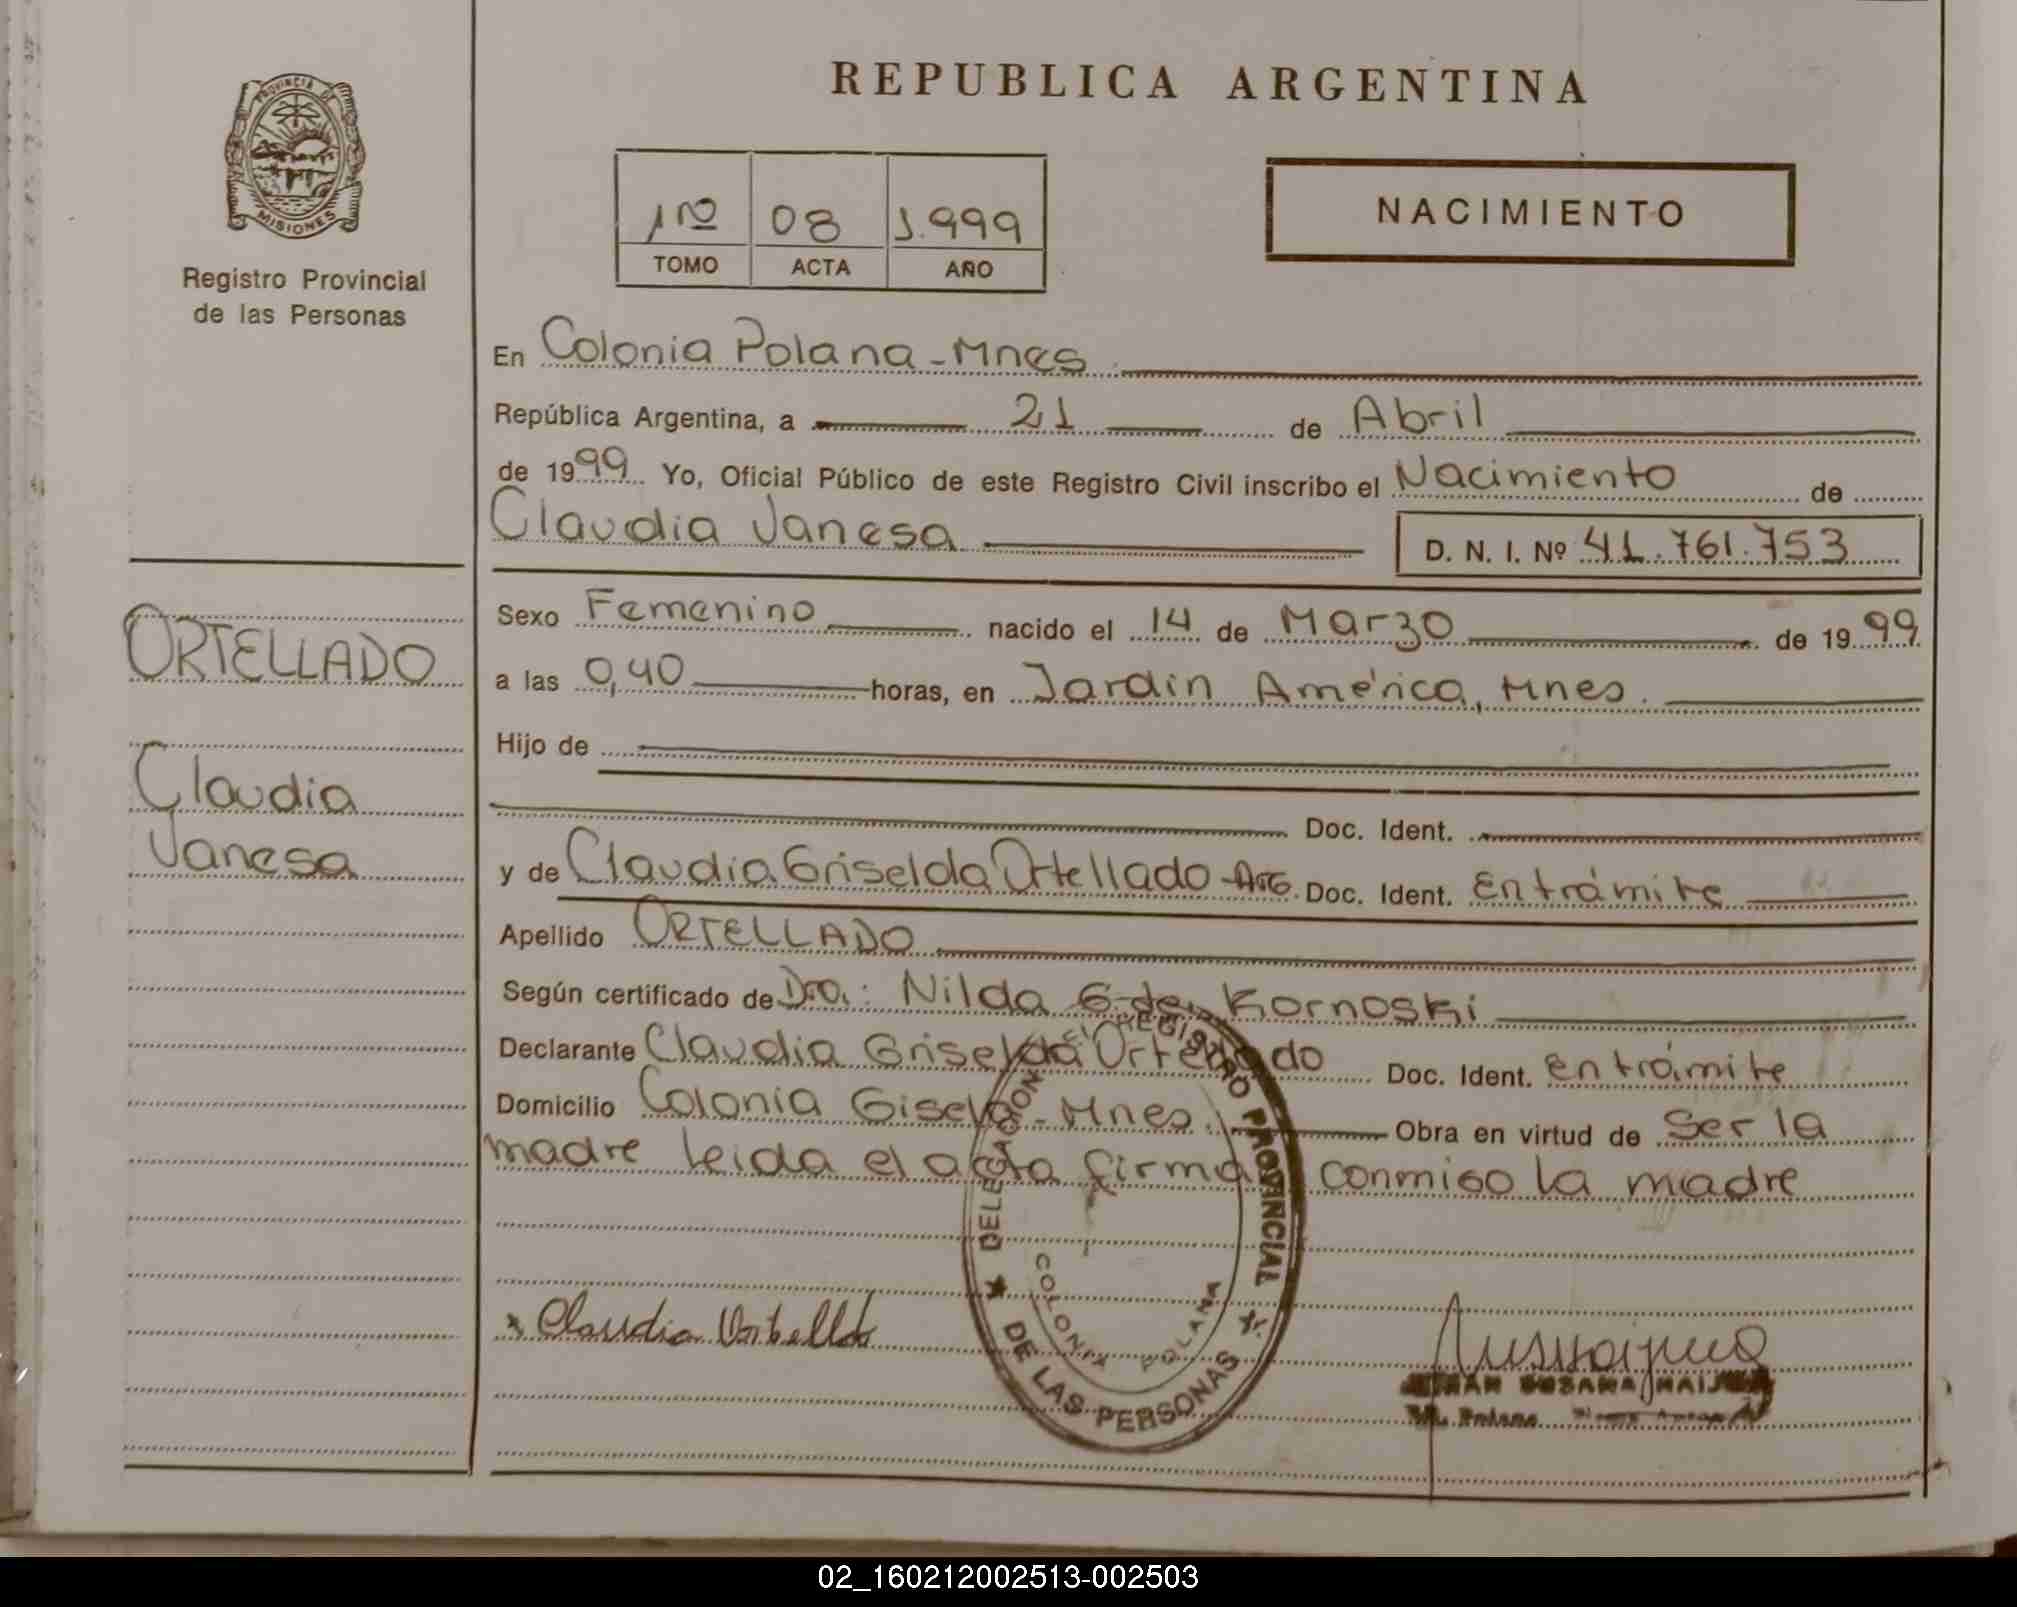 PROVINCIA DE
MISIONES
Registro Provincial
de las Personas
ORTELLADO
Claudia
Vanesa
REPUBLICA ARGENTINA
1ro 08 1.999
TOMO ACTA AÑO
NACIMIENTO
En Colonia Polana - Mnes.
República Argentina, a 21 de Abril
de 1999 Yo, Oficial Público de este Registro Civil inscribo el Nacimiento de
Claudia Vanesa D. N. I. Nº 41.761.753
Sexo Femenino nacido el 14 de Marzo de 1999
a las 0,40 horas, en Jardín América, Mnes.
Hijo de
Doc. Ident.
y de Claudia Griselda Ortellado - Arg. Doc. Ident. En trámite
Apellido ORTELLADO
Según certificado de Dra.: Nilda G. de Kornoski
Declarante Claudia Griselda Ortellado Doc. Ident. En trámite
Domicilio Colonia Gisela - Mnes. Obra en virtud de Ser la
madre leida el acta firma conmigo la madre
DELEGACION REGISTRO PROVINCIAL
DE LAS PERSONAS
COLONIA POLANA
x Claudia Ortellado
SUSANA
02_160212002513-002503